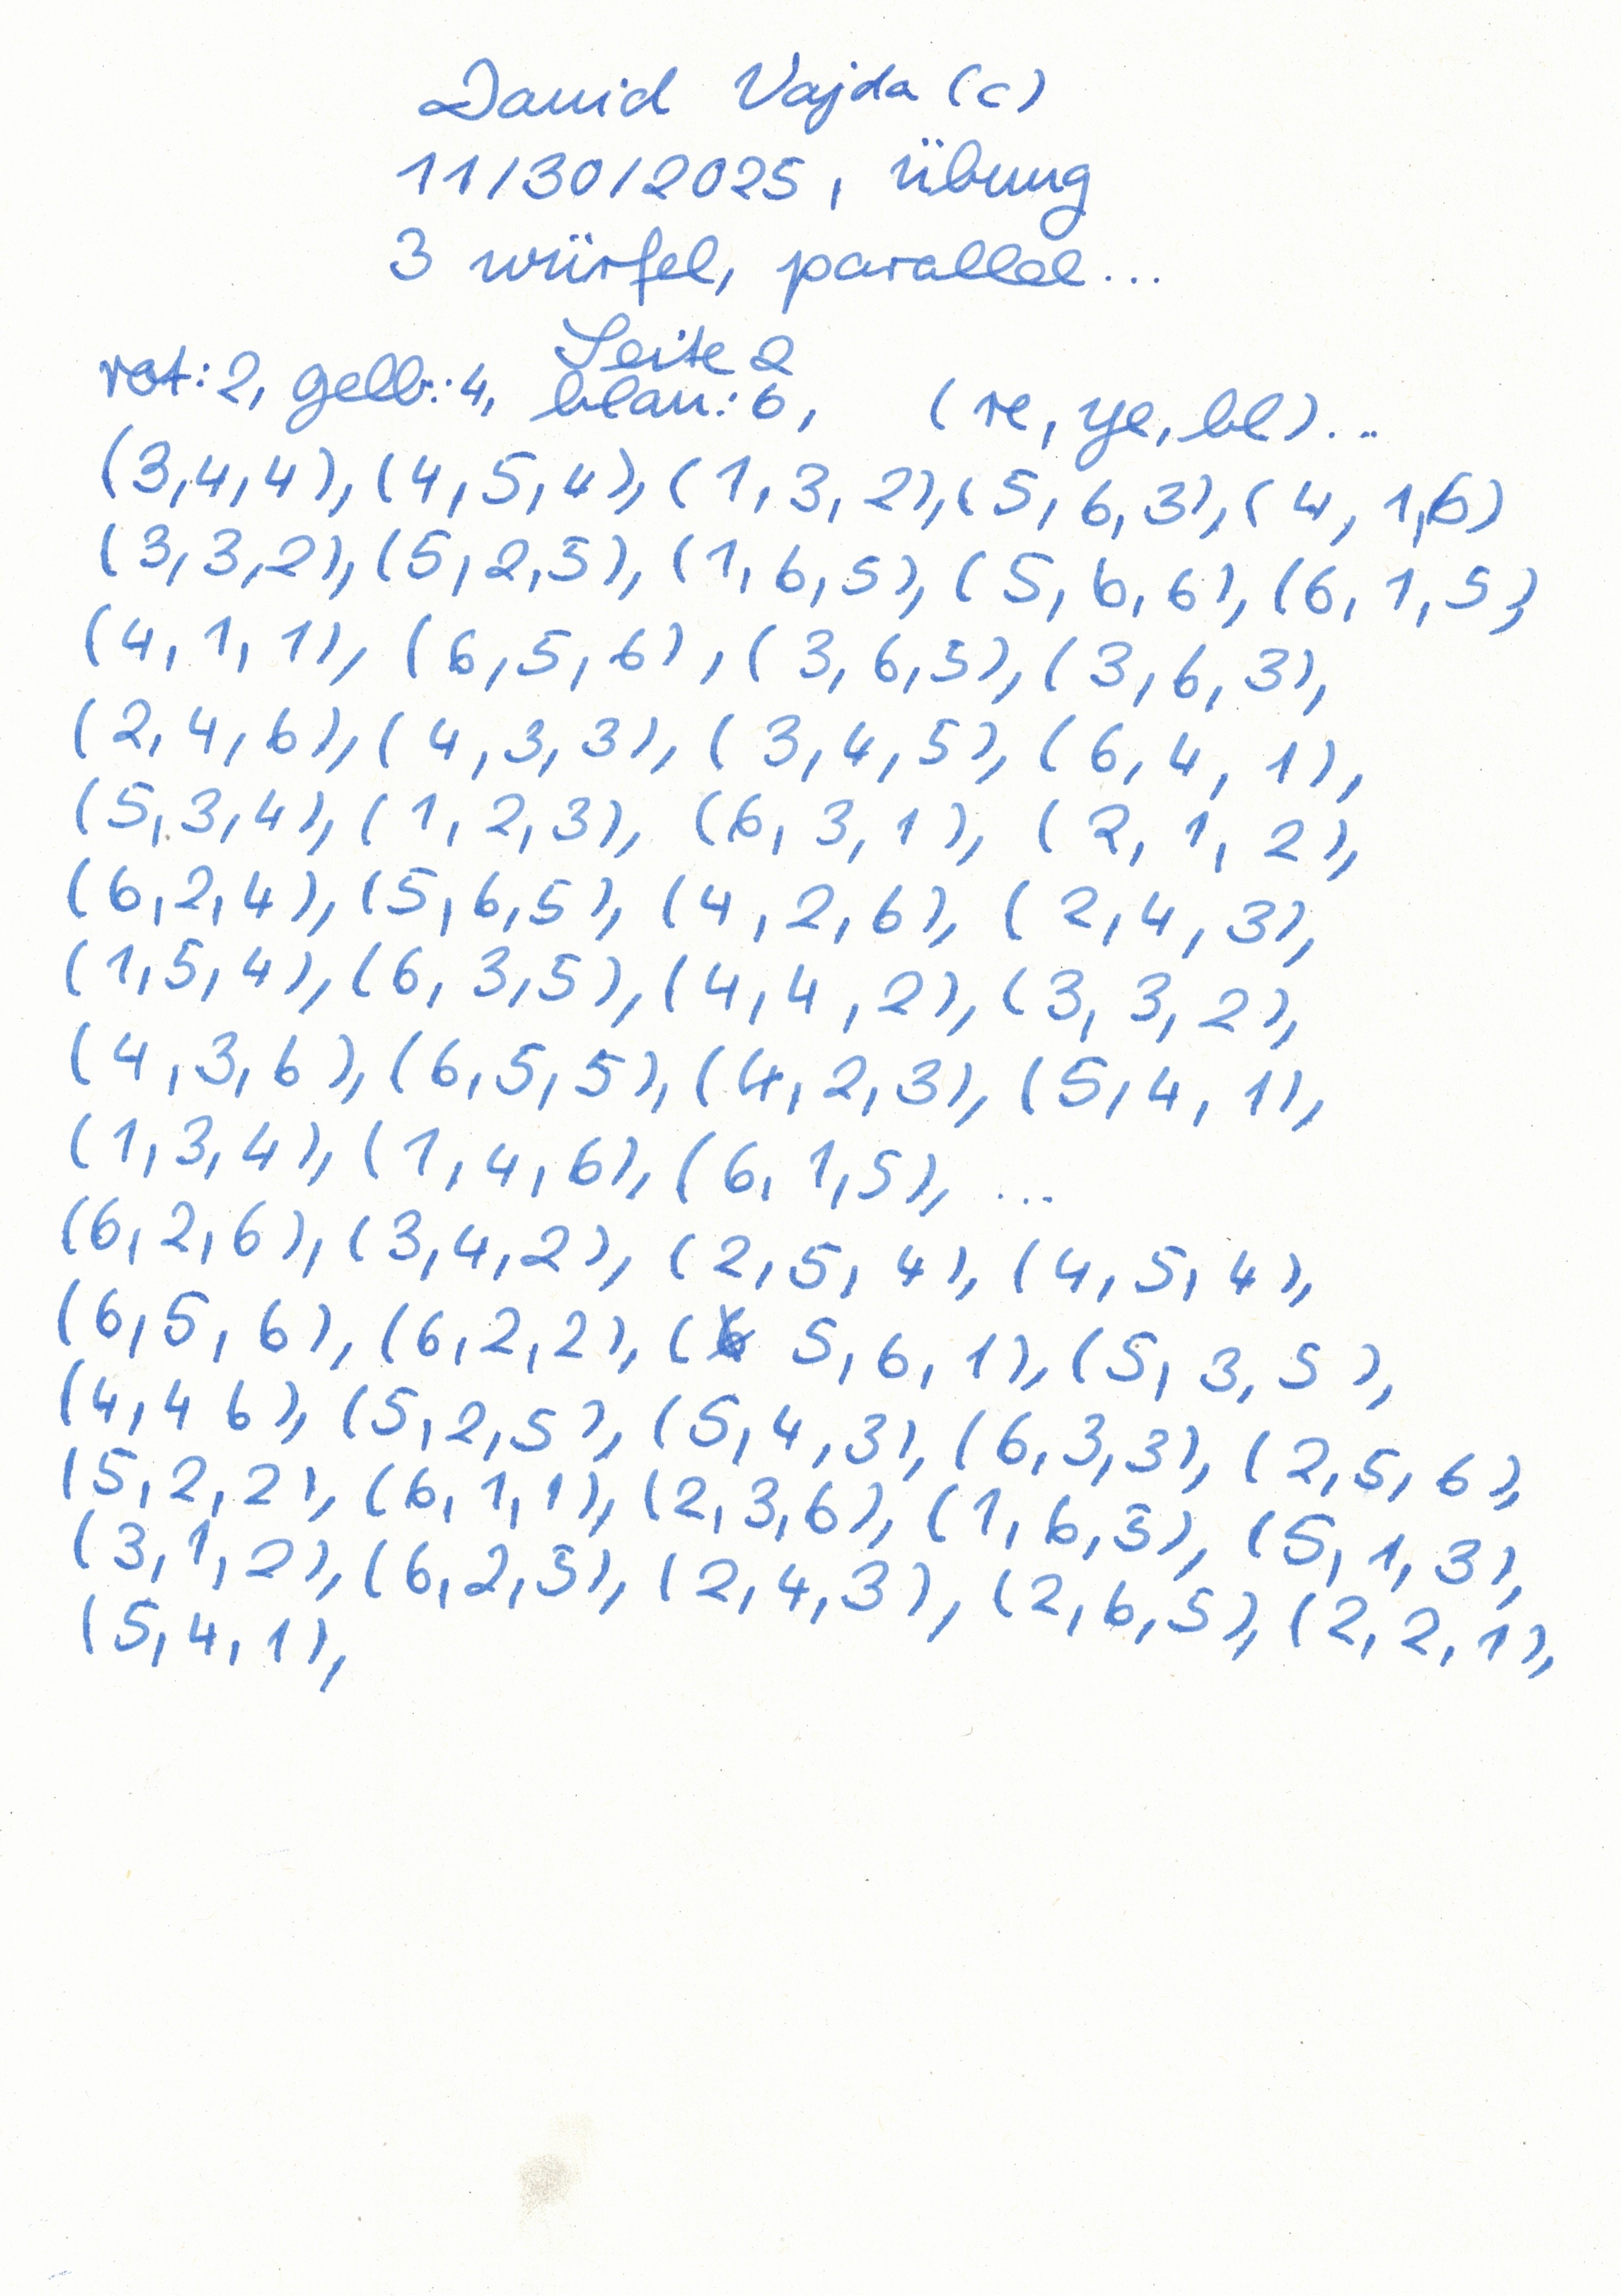 David Vajda (c)
11/30/2025, übung
3 würfel, parallel...
Seite 2
rot: 2, gelb: 4, blau: 6, (re, ye, bl)...
(3,4,4), (4,5,4), (1,3,2), (5,6,3), (4,1,6)
(3,3,2), (5,2,5), (1,6,5), (5,6,6), (6,1,5),
(4,1,1), (6,5,6), (3,6,5), (3,6,3),
(2,4,6), (4,3,3), (3,4,5), (6,4,1),
(5,3,4), (1,2,3), (6,3,1), (2,1,2),
(6,2,4), (5,6,5), (4,2,6), (2,4,3),
(1,5,4), (6,3,5), (4,4,2), (3,3,2),
(4,3,6), (6,5,5), (4,2,3), (5,4,1),
(1,3,4), (1,4,6), (6,1,5), ...
(6,2,6), (3,4,2), (2,5,4), (4,5,4),
(6,5,6), (6,2,2), (5,6,1), (5,3,5),
(4,4 6), (5,2,5), (5,4,3), (6,3,3), (2,5,6),
(5,2,2), (6,1,1), (2,3,6), (1,6,5), (5,1,3),
(3,1,2), (6,2,5), (2,4,3), (2,6,5), (2,2,1),
(5,4,1),